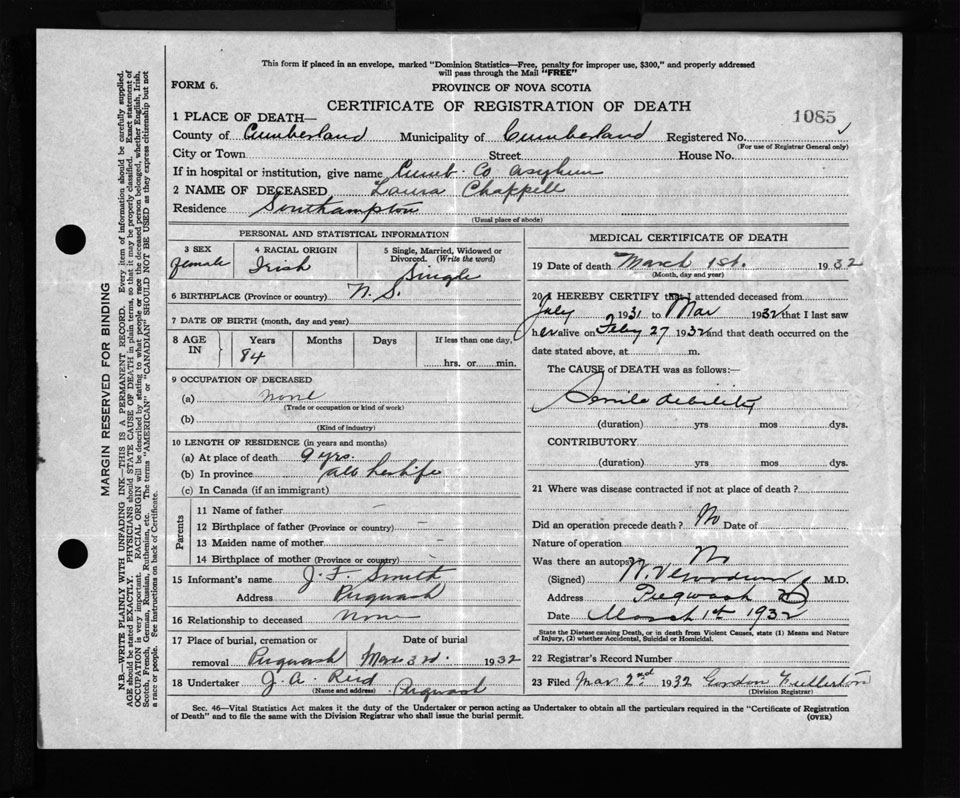 This form if placed in an envelope, marked "Dominion Statistics—Free, penalty for improper use, $300," and properly addressed
will pass through the Mail "FREE"
FORM 6.
PROVINCE OF NOVA SCOTIA
CERTIFICATE OF REGISTRATION OF DEATH
1085
1 PLACE OF DEATH—
County of Cumberland Municipality of Cumberland Registered No.
(For use of Registrar General only)
City or Town Street House No.
If in hospital or institution, give name Cumb. Co Asylum
2 NAME OF DECEASED Laura Chappell
Residence Southampton
(Usual place of abode)
PERSONAL AND STATISTICAL INFORMATION
3 SEX 4 RACIAL ORIGIN 5 Single, Married, Widowed or
Divorced. (Write the word)
female Irish Single
6 BIRTHPLACE (Province or country) N. S.
7 DATE OF BIRTH (month, day and year)
8 AGE IN Years Months Days If less than one day,
84 hrs. or min.
9 OCCUPATION OF DECEASED
(a) none
(Trade or occupation or kind of work)
(b)
(Kind of industry)
10 LENGTH OF RESIDENCE (in years and months)
(a) At place of death 9 yrs.
(b) In province all her life
(c) In Canada (if an immigrant)
Parents
11 Name of father —
12 Birthplace of father (Province or country) —
13 Maiden name of mother —
14 Birthplace of mother (Province or country) —
15 Informant's name J. F. Smith
Address Pugwash
16 Relationship to deceased None
17 Place of burial, cremation or Date of burial
removal Pugwash Mar 3rd. 1932
18 Undertaker J. A. Reid Pugwash
(Name and address)
MEDICAL CERTIFICATE OF DEATH
19 Date of death March 1st. 1932
(Month, day and year)
20 I HEREBY CERTIFY that I attended deceased from
July 1931 to Mar 1932 that I last saw
her alive on Feby 27 1932 and that death occurred on the
date stated above, at m.
The CAUSE of DEATH was as follows:—
Senile debility
(duration) yrs mos dys.
CONTRIBUTORY
(duration) yrs. mos. dys.
21 Where was disease contracted if not at place of death?
Did an operation precede death? No Date of
Nature of operation
Was there an autopsy No
(Signed) M.D.
Address Pugwash
Date March 1st 1932
State the Disease causing Death, or in death from Violent Causes, state (1) Means and Nature
of Injury, (2) whether Accidental, Suicidal or Homicidal.
22 Registrar's Record Number
23 Filed Mar 2nd 1932 Gordon Fullerton
(Division Registrar)
Sec. 46—Vital Statistics Act makes it the duty of the Undertaker or person acting as Undertaker to obtain all the particulars required in the "Certificate of Registration
of Death" and to file the same with the Division Registrar who shall issue the burial permit.
(OVER)
MARGIN RESERVED FOR BINDING
N.B.—WRITE PLAINLY WITH UNFADING INK—THIS IS A PERMANENT RECORD. Every item of information should be carefully supplied.
AGE should be stated EXACTLY. PHYSICIANS should STATE CAUSE OF DEATH in plain terms, so that it may be properly classified. Exact statement of
OCCUPATION is very important. RACIAL ORIGIN will be described by stating to what people or race the deceased person belonged, whether English, Irish,
Scotch, French, German, Russian, Ruthenian, etc. The terms "AMERICAN" or "CANADIAN" SHOULD NOT BE USED as they express citizenship but not
a race or people. See instructions on back of Certificate.